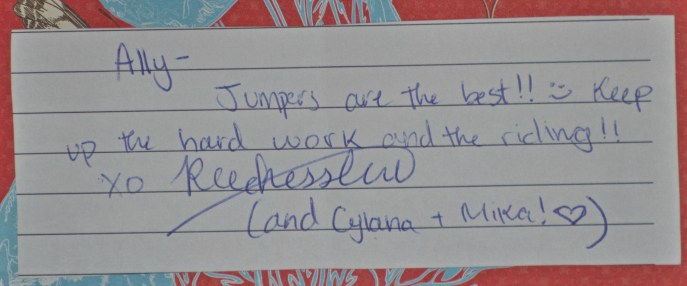 Ally-
Jumpers are the best!! :) Keep
up the hard work and the riding!!
XO
(and Cylana + Mika! ♡)